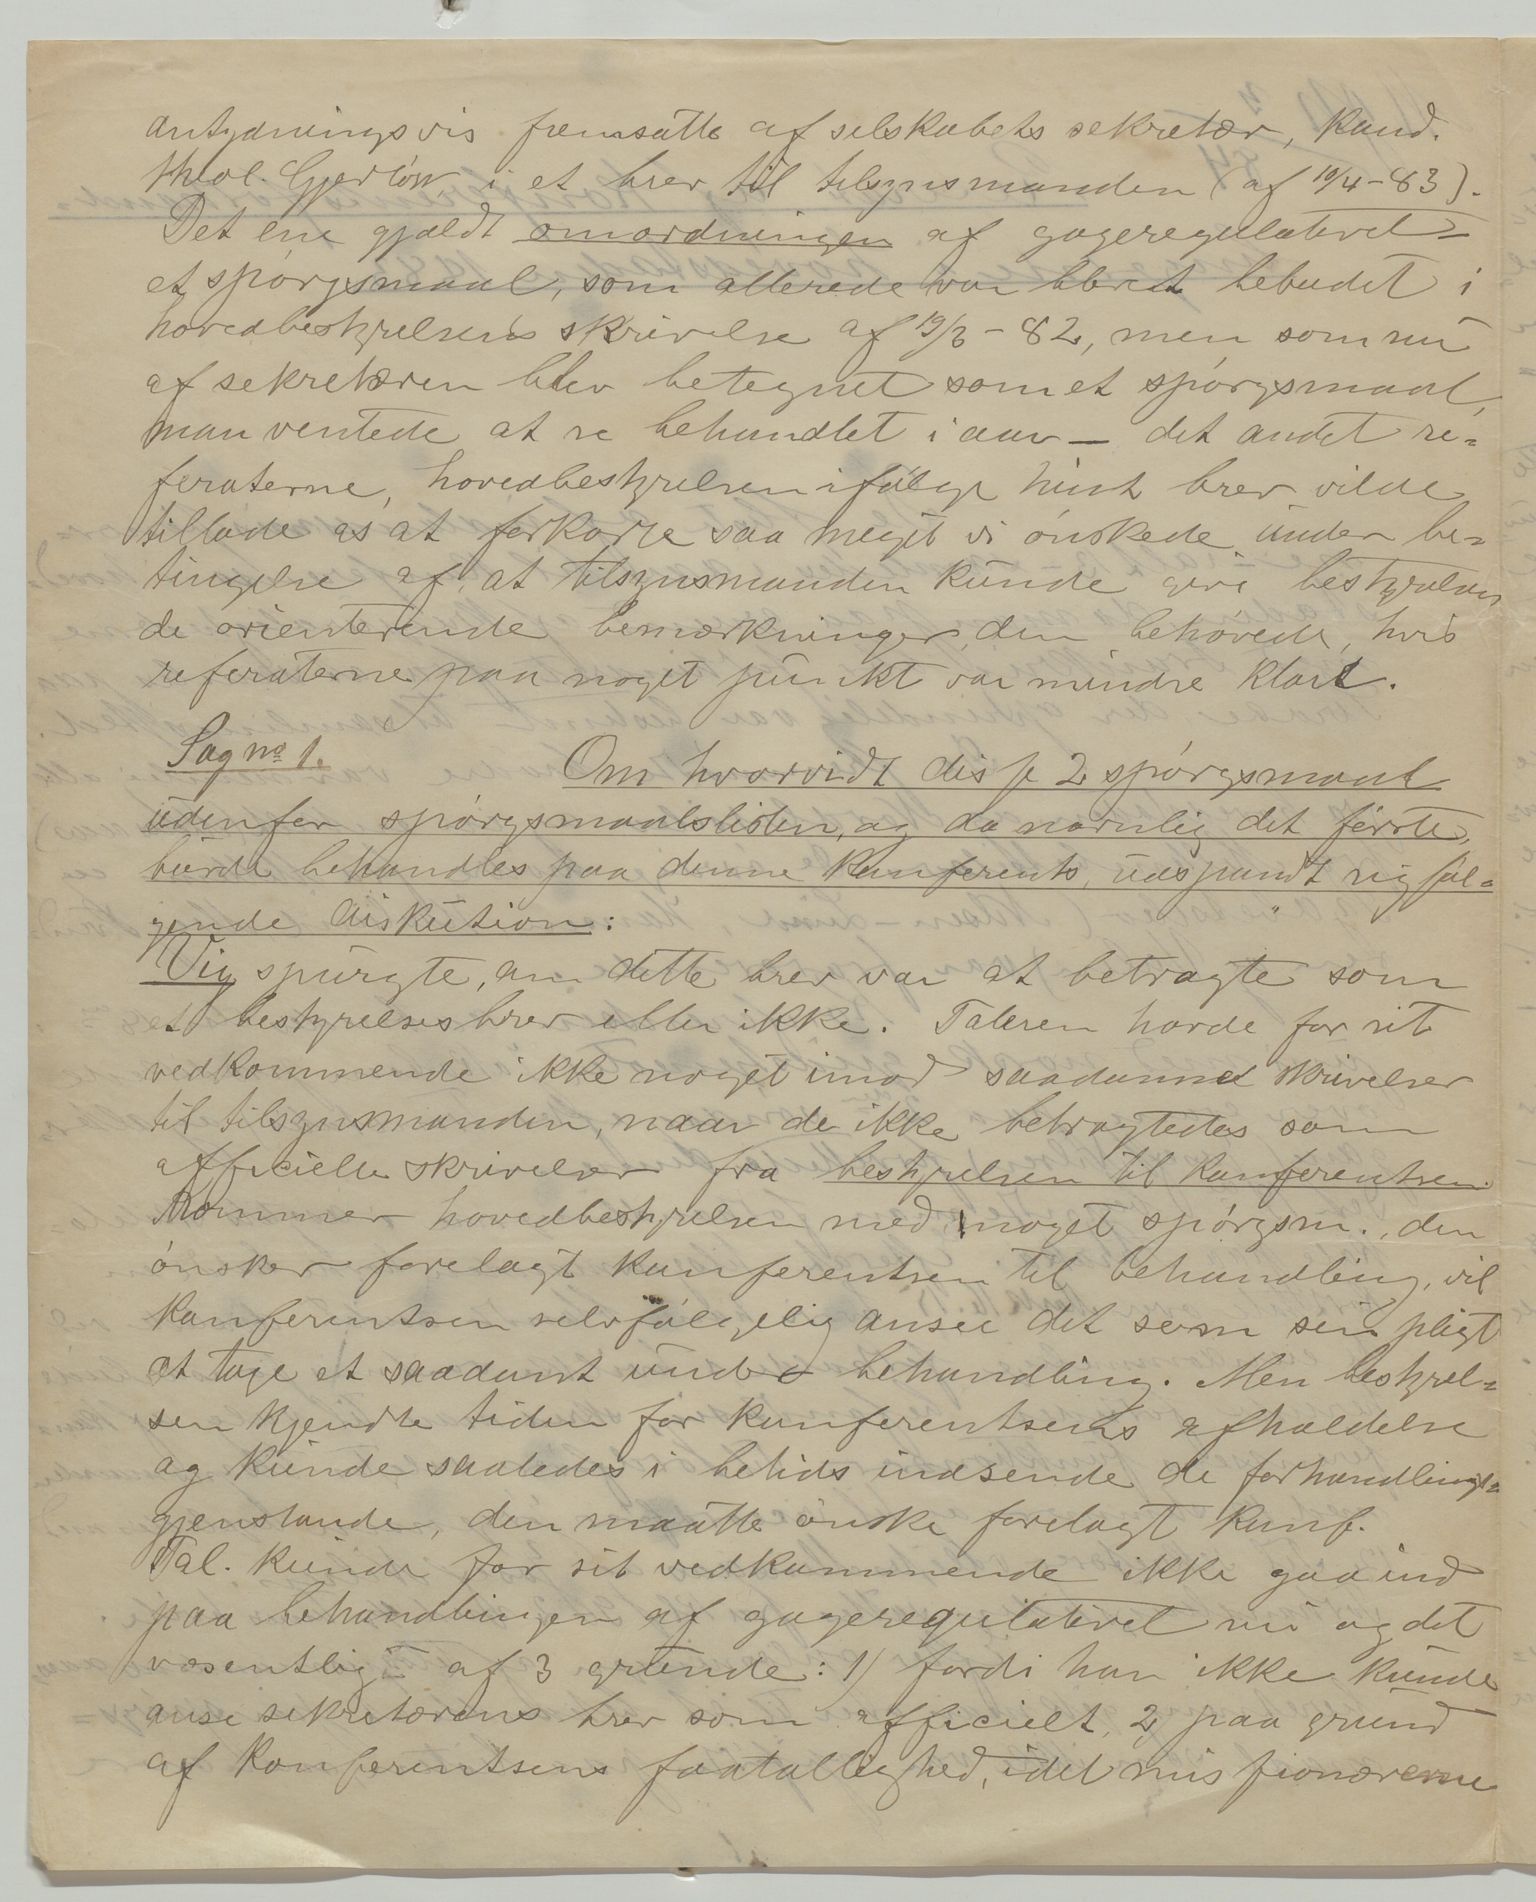 antydningsvis fremsatte af selskabets sekretær, Kand.
theol. Gjerløw, i et brev til tilsynsmanden (af 19/4-83).
Det ene gjaldt omordningen af gageregulativet =
et spórgsmaal, som allerede var blevet bebudet i
hovedbestyrelsens skrivelse af 19/3-82, men som nu
af sekretæren blev betegnet som et spórgsmaal,
man ventede at se behandlet i aar – det andet re=
feraterne, hovedbestyrelsen ifólge hint brev vilde
tillade os at forkorte saa meget vi ónskede under be=
tingelse af, at tilsynsmanden kunde give bestyrelsen
de orienterende bemærkninger, den behóvede, hvis
referaterne paa noget punkt var mindre klart.
Sag no 1. Om hvorvidt disse 2 spórgsmaal
udenfor spórgsmaalslisten, og da navnlig det fórste,
burde behandles paa denne konferents, udspandt sig fól=
gende diskution:
Vig spurgte, om dette brev var at betragte som
et bestyrelsesbrev eller ikke. Taleren havde for sit
vedkommende ikke noget imod saadanne skrivelser
til tilsynsmanden, naar de ikke betragtedes som
officielle skrivelser fra bestyrelsen til konferentsen.
Kommer hovedbestyrelsen med noget spórgsm., den
ónsker forelagt konferentsen til behandling, vil
konferentsen selvfólgelig ansee det som sin pligt
at tage et saadant under behandling. Men bestyrel=
sen kjendte tiden for konferentsens afholdelse
og kunde saaledes i betids indsende de forhandlings=
gjenstande, den maatte ónske forelagt konf.
Tal. kunde for sit vedkommende ikke gaa ind
paa behandlingen af gageregulativet nu og det
væsentlig af 3 grunde: 1) fordi han ikke kunde
anse sekretærens brev som officielt, 2, paa grund
af konferentsens faatallighed, idet missionærerne